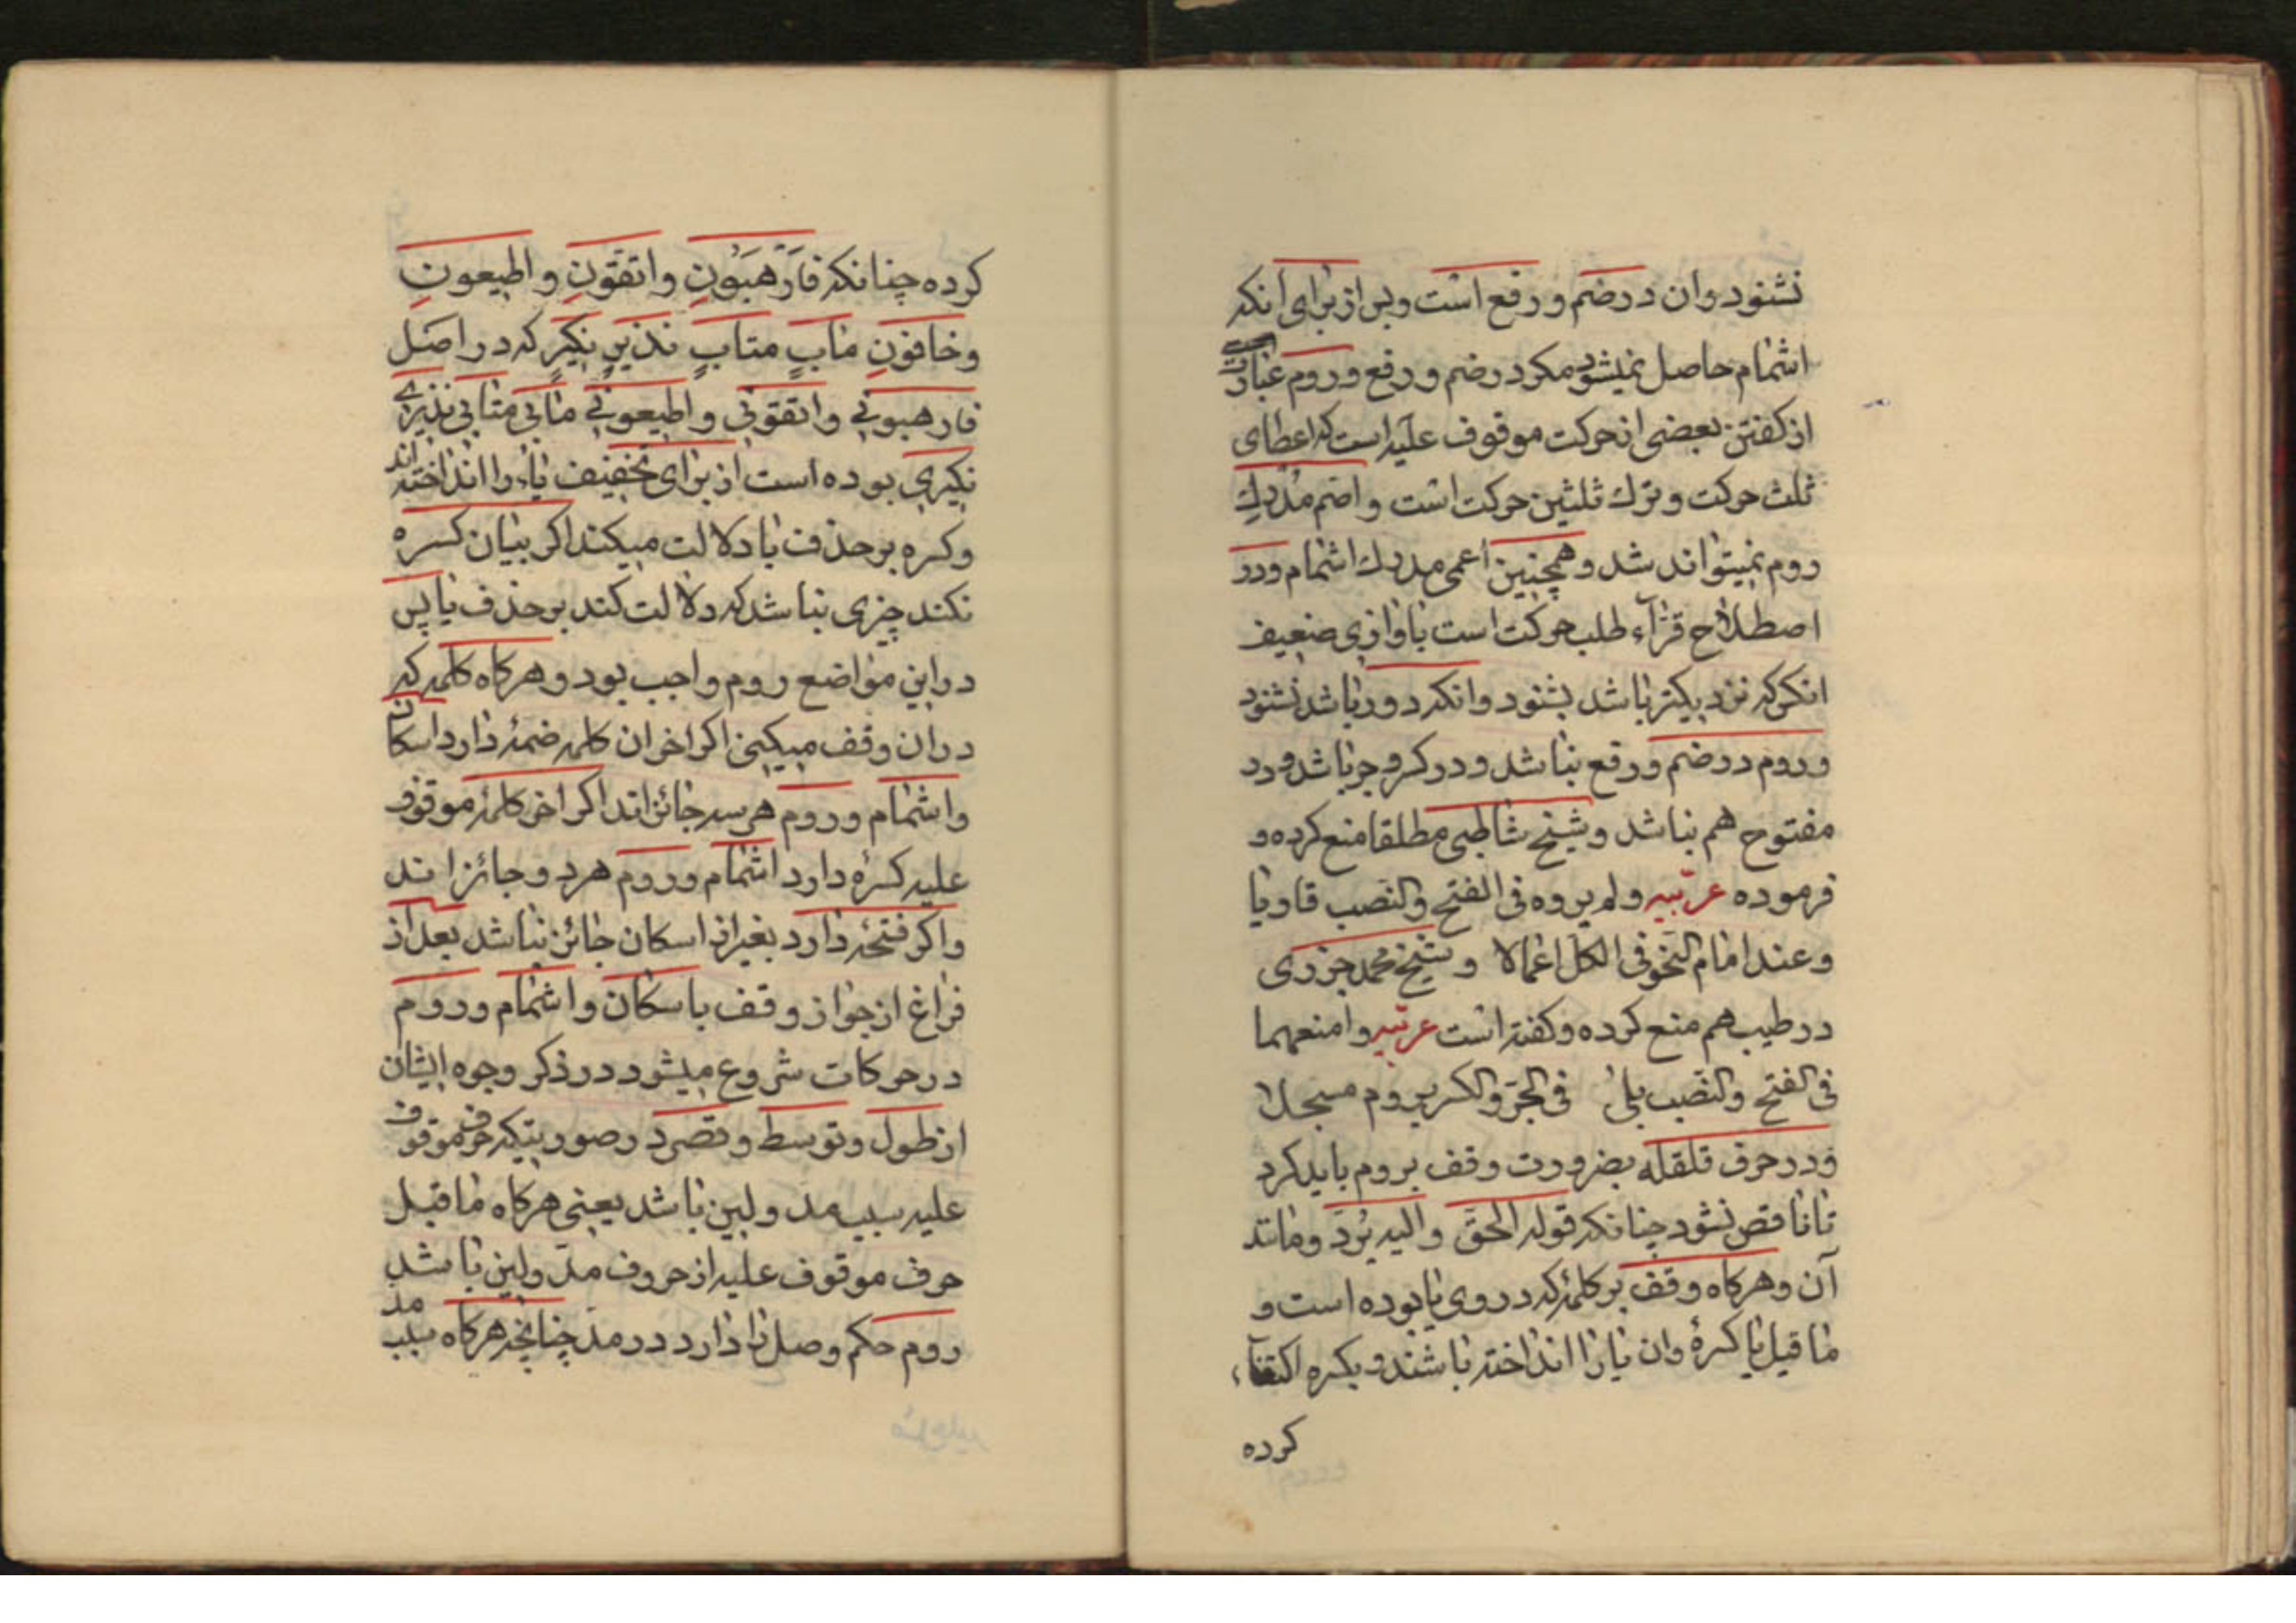 نشنود وان در ضم و رفع است وبس از برای انکه
اشمام حاصل نمیشود مکر در ضم و رفع وروم عبارت
از کفتن بعضی از حرکت موقوف علیه است که اعطای
ثلث حرکت و ترك ثلثین حرکت است و اصم مدرك
روم نمیتواند شد و همچنین اعمی مدرك اشمام و در
اصطلاح قرآء طلب حرکت است باوازی ضعیف
انکس که نزدیکتر باشد بشنود وانکه دور باشد نشنود
وروم در ضم و رفع باشد و در کسر و جر باشد ودر
مفتوح هم نباشد وشیخ شاطبی مطلقا منع کرده و
فرموده عربیه ولم یروه فی الفتح والنصب قاویا
وعند امام النحو فی الکل اعمالا وشیخ محمد جزری
در طیب هم منع کرده وکفته است عربیه وامنعهما
فی الفتح والنصب بلی فی الجر والکسر یروم مسجلا
ودر حرف قلقله بضرورت وقف بروم باید کرد
تا ناقص نشود چنانکه قوله الحق والیه یرد ومانند
آن وهرکاه وقف بر کلمۀ که در وی یا بوده است و
ما قبل یا کسرۀ وان یا را انداخته باشند وبکسره اکتفاء
کرده
کرده چنانکه فارهبون واتقون واطیعون
وخافون ماب متاب نذیر نکیر که در اصل
فارهبونی واتقونی واطیعونی مابی متابی نذیری
نکیری بوده است از برای تخفیف یاء را انداخته اند
وکسره بر حذف یا دلالت میکند اکر بیان کسره
نکند چیزی نباشد که دلالت کند بر حذف یا پس
در این مواضع روم واجب بود وهرکاه کلمه که
در ان وقف میکنی اکر اخر ان کلمه ضمۀ دارد اسکان
واشمام وروم هر سه جائزاند اکر اخر کلمۀ موقوف
علیه کسرۀ دارد اشمام وروم هر دو جائز اند
واکر فتحۀ دارد بغیر از اسکان جائز نباشد بعد از
فراغ از جواز وقف باسکان واشمام وروم
در حرکات شروع میشود در ذکر وجوه ایشان
از طول وتوسط وقصر در صورتیکه حرف موقوف
علیه سبب مد ولین باشد یعنی هرکاه ما قبل
حرف موقوف علیه از حروف مد ولین باشد
روم حکم وصل را دارد در مد چنانچه هرکاه سبب مد